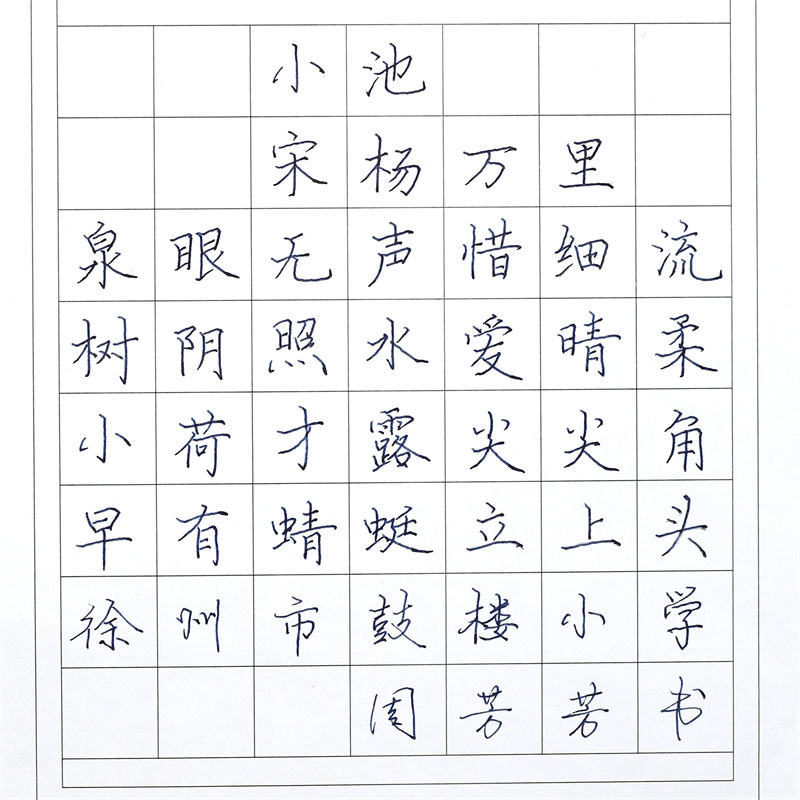 小池
宋杨万里
泉眼无声惜细流
树阴照水爱晴柔
小荷才露尖尖角
早有蜻蜓立上头
徐州市鼓楼小学
周芳芳书